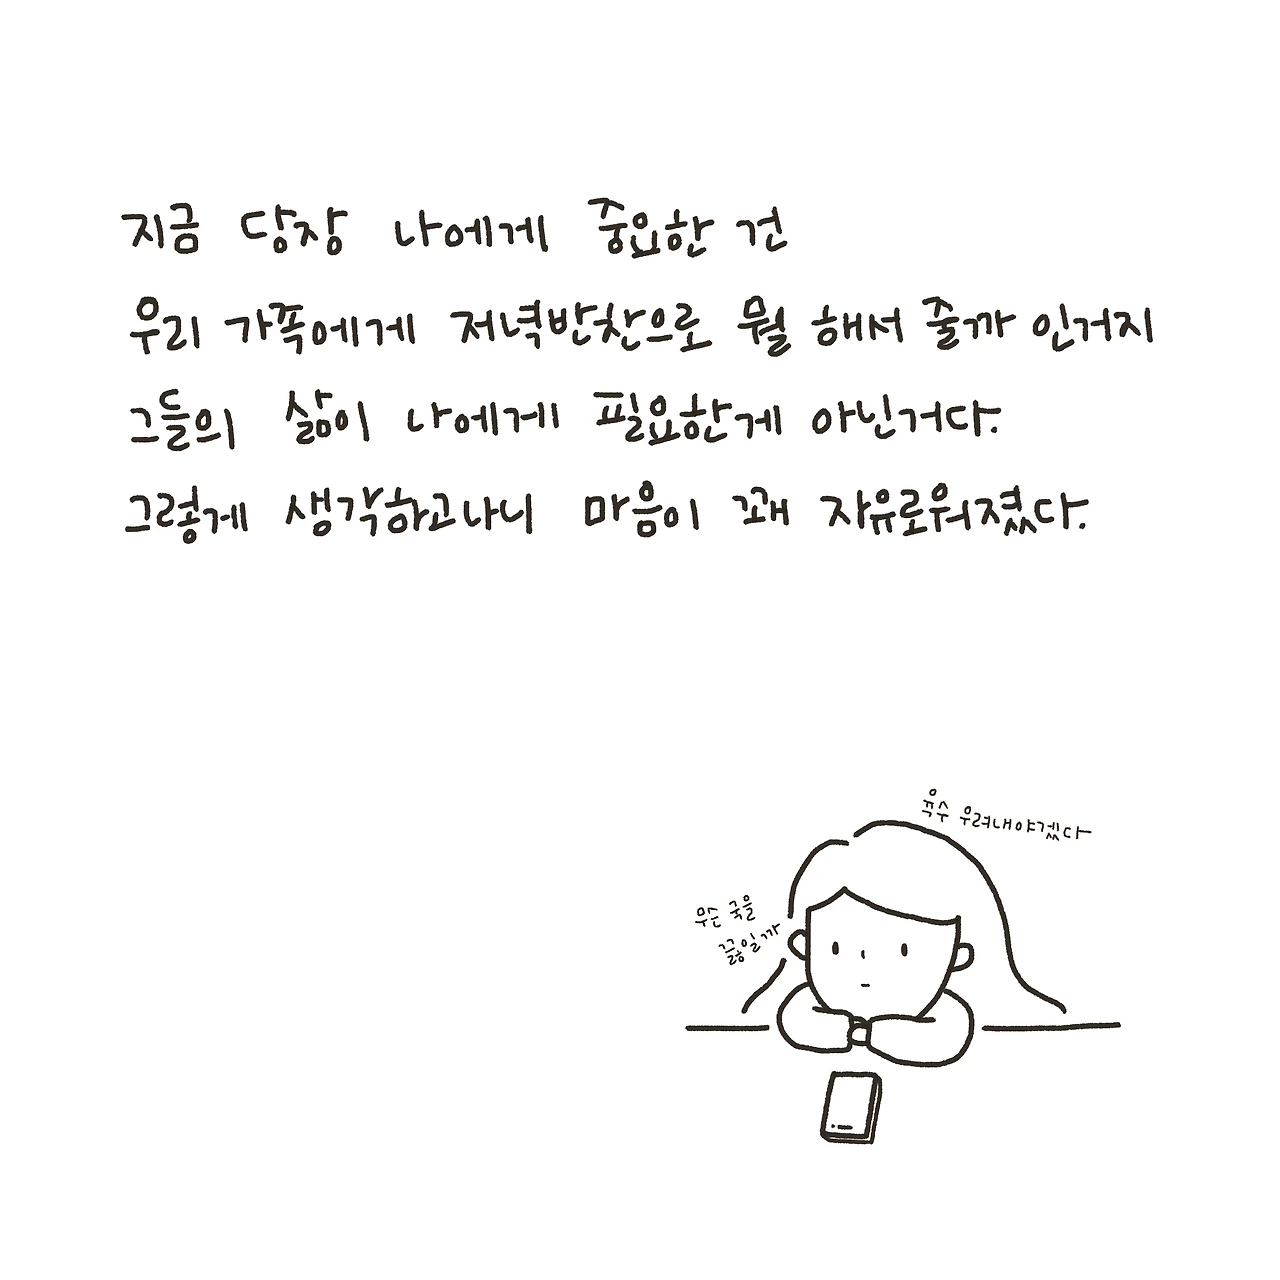 지금 당장 나에게 중요한 건
우리 가족에게 저녁반찬으로 뭘 해서 줄까 인거지
그들의 삶이 나에게 필요한게 아닌거다.
그렇게 생각하고나니 마음이 꽤 자유로워졌다.
육수 우려내야겠다
무슨 국을
끓일까